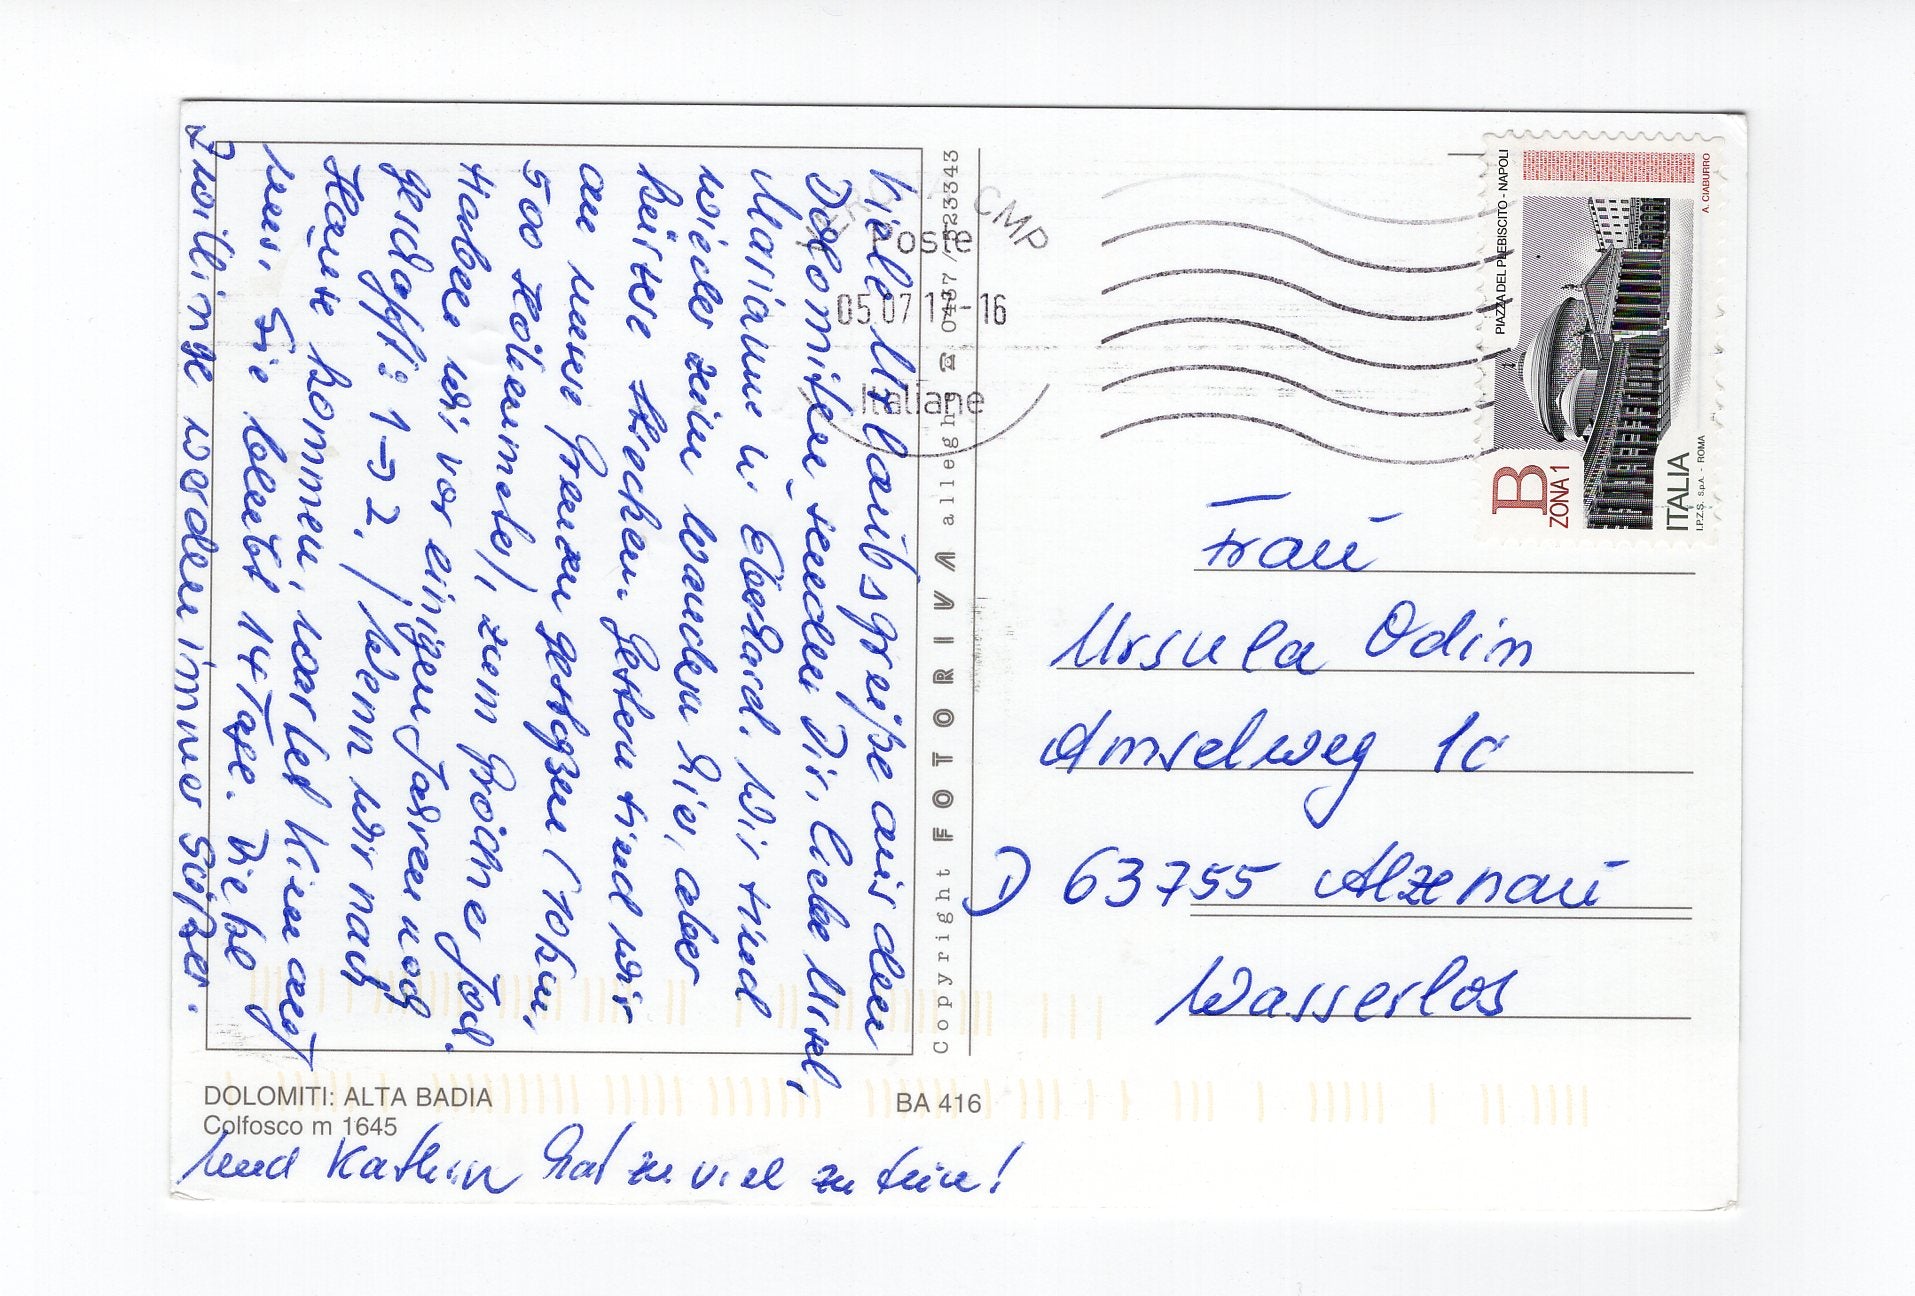 Viele Urlaubsgrüße aus den
Dolomiten senden Dir, liebe Ursel,
Marianne u. Eberhard. Wir sind
wieder zum Wandern hier, aber
kürzere Strecken. Gestern sind wir
an unsere Grenzen gestoßen (10 km,
500 Höhenmeter), zum
Haben wir vor einigen Jahren noch
geschafft: 1→2. / Wenn wir nach
Hause kommen, wartet Kira auf
uns. Sie bleibt 14 Tage. Die
Zwillinge werden immer süßer.
Und Kathrin hat zu viel zu tun!
DOLOMITI: ALTA BADIA
Colfosco m 1645
BA 416
Copyright FOTORIVA alleghe ☎ 0437 / 523343
CMP
Poste
05 07 1 - 16
Italiane
PIAZZA DEL PLEBISCITO - NAPOLI
A. CIABURRO
B
ZONA 1
ITALIA
I.P.Z.S. S.p.A. - ROMA
Frau
Ursula Odin
Amselweg 1c
D 63755 Alzenau
Wasserlos